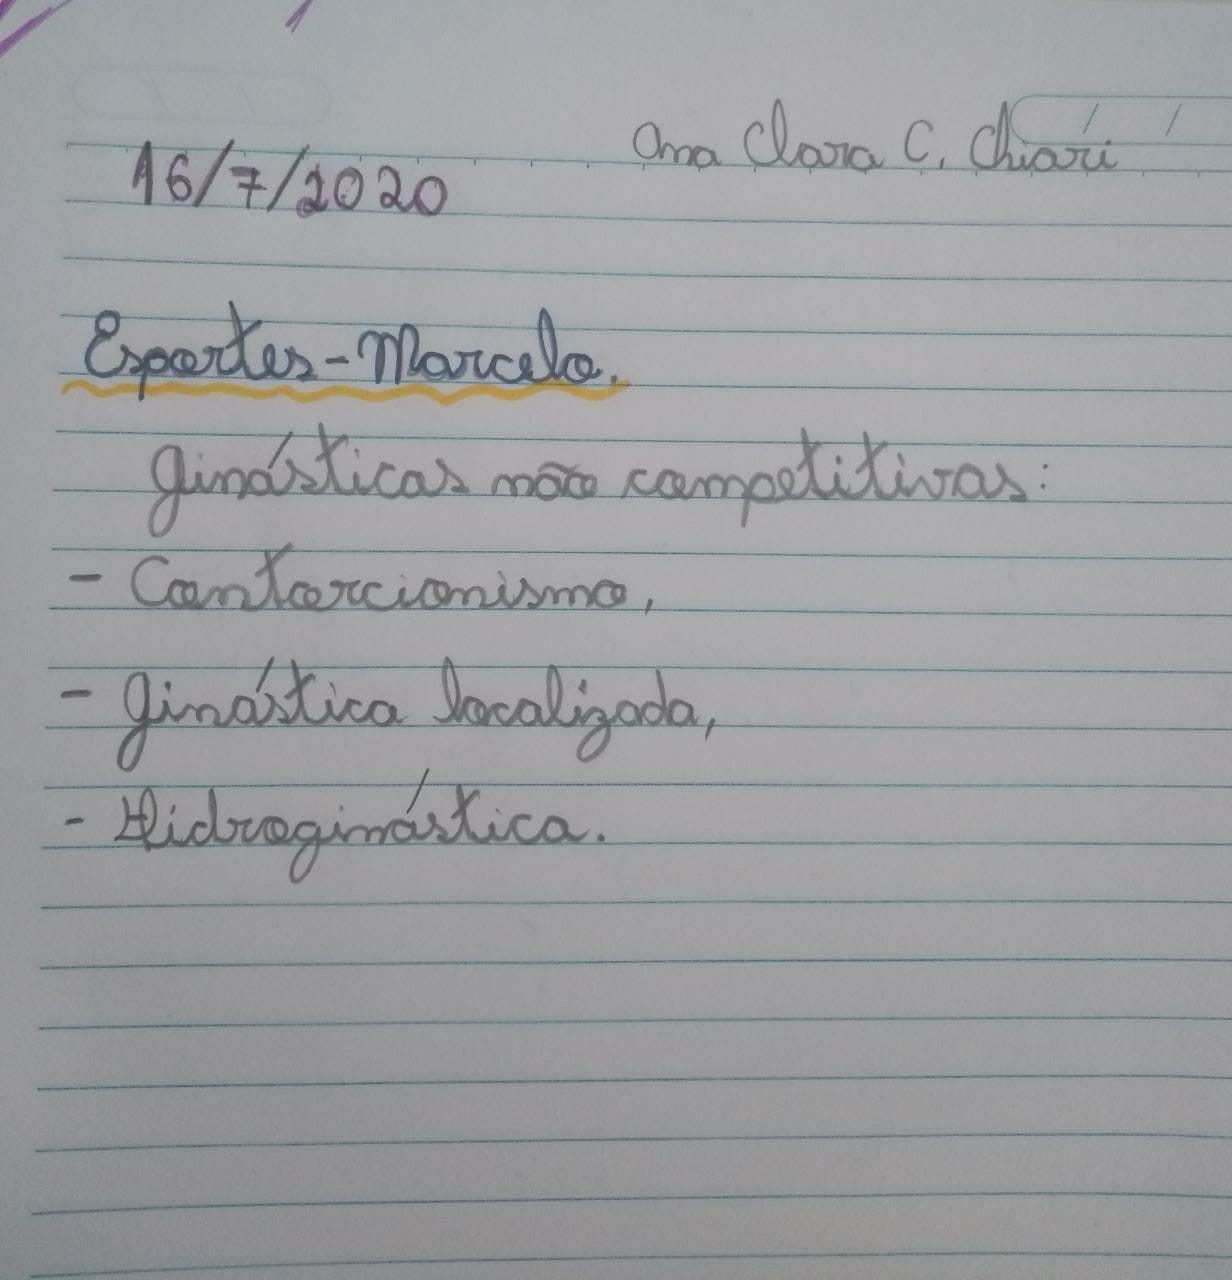 Ana Clara C. Chiari
16/7/2020
Esportes - Marcelo.
Ginásticas não competitivas:
- Contorcionismo,
- Ginástica localizada,
- Hidroginástica.